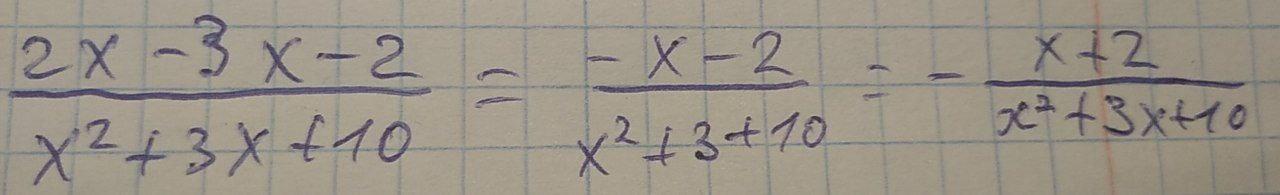 (2x - 3x - 2)/(x² + 3x + 10) = (-x - 2)/(x² + 3 + 10) = - (x + 2)/(x² + 3x + 10)